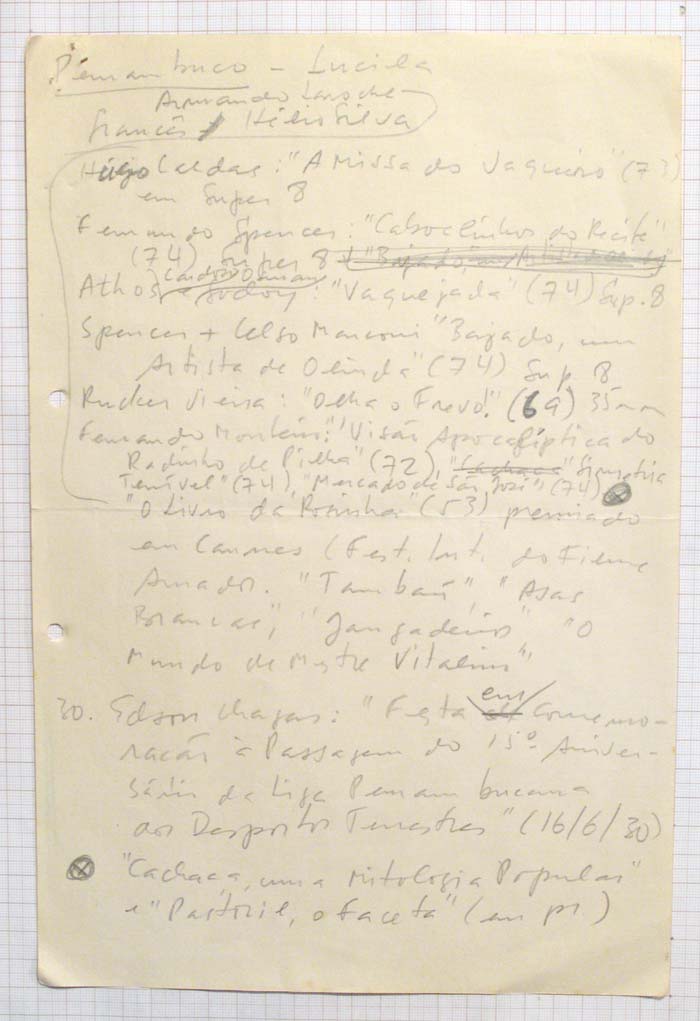 Pernambuco - Lucila
Armando Laroche
Francês + Hélio Silva
Hugo Caldas: "A Missa do Vaqueiro" (73)
em Super 8
Fernando Spencer: "Caboclinhos do Recife"
(74) Super 8 + "Bajado, um Artista de Olinda"
Cardoso
Athos e Godoy: "Vaquejada" (74) Sup. 8
Spencer + Celso Marconi "Bajado, um
Artista de Olinda" (74) Sup. 8
Rucker Vieira: "Olha o Frevo!" (69) 35mm
Fernando Monteiro: "Visão Apocalíptica do
Radinho de Pilha" (72), "Cachaça" Simetria
Terrível" (74), "Mercado de São José" (74)
"O Livro da Rosinha" (53) premiado
em Cannes (Fest. Int. do Filme
Amador. "Tambaú", "Asas
Brancas", "Jangadeiros" "O
Mundo de Mestre Vitalino"
30. Edson Chagas: "Festa em Comemo-
ração à Passagem do 15º Aniver-
sário da Liga Pernambucana
aos Desportos Terrestres" (16/6/30)
"Cachaça, uma Mitologia Popular"
e "Pastoril, o Faceta" (em pr.)